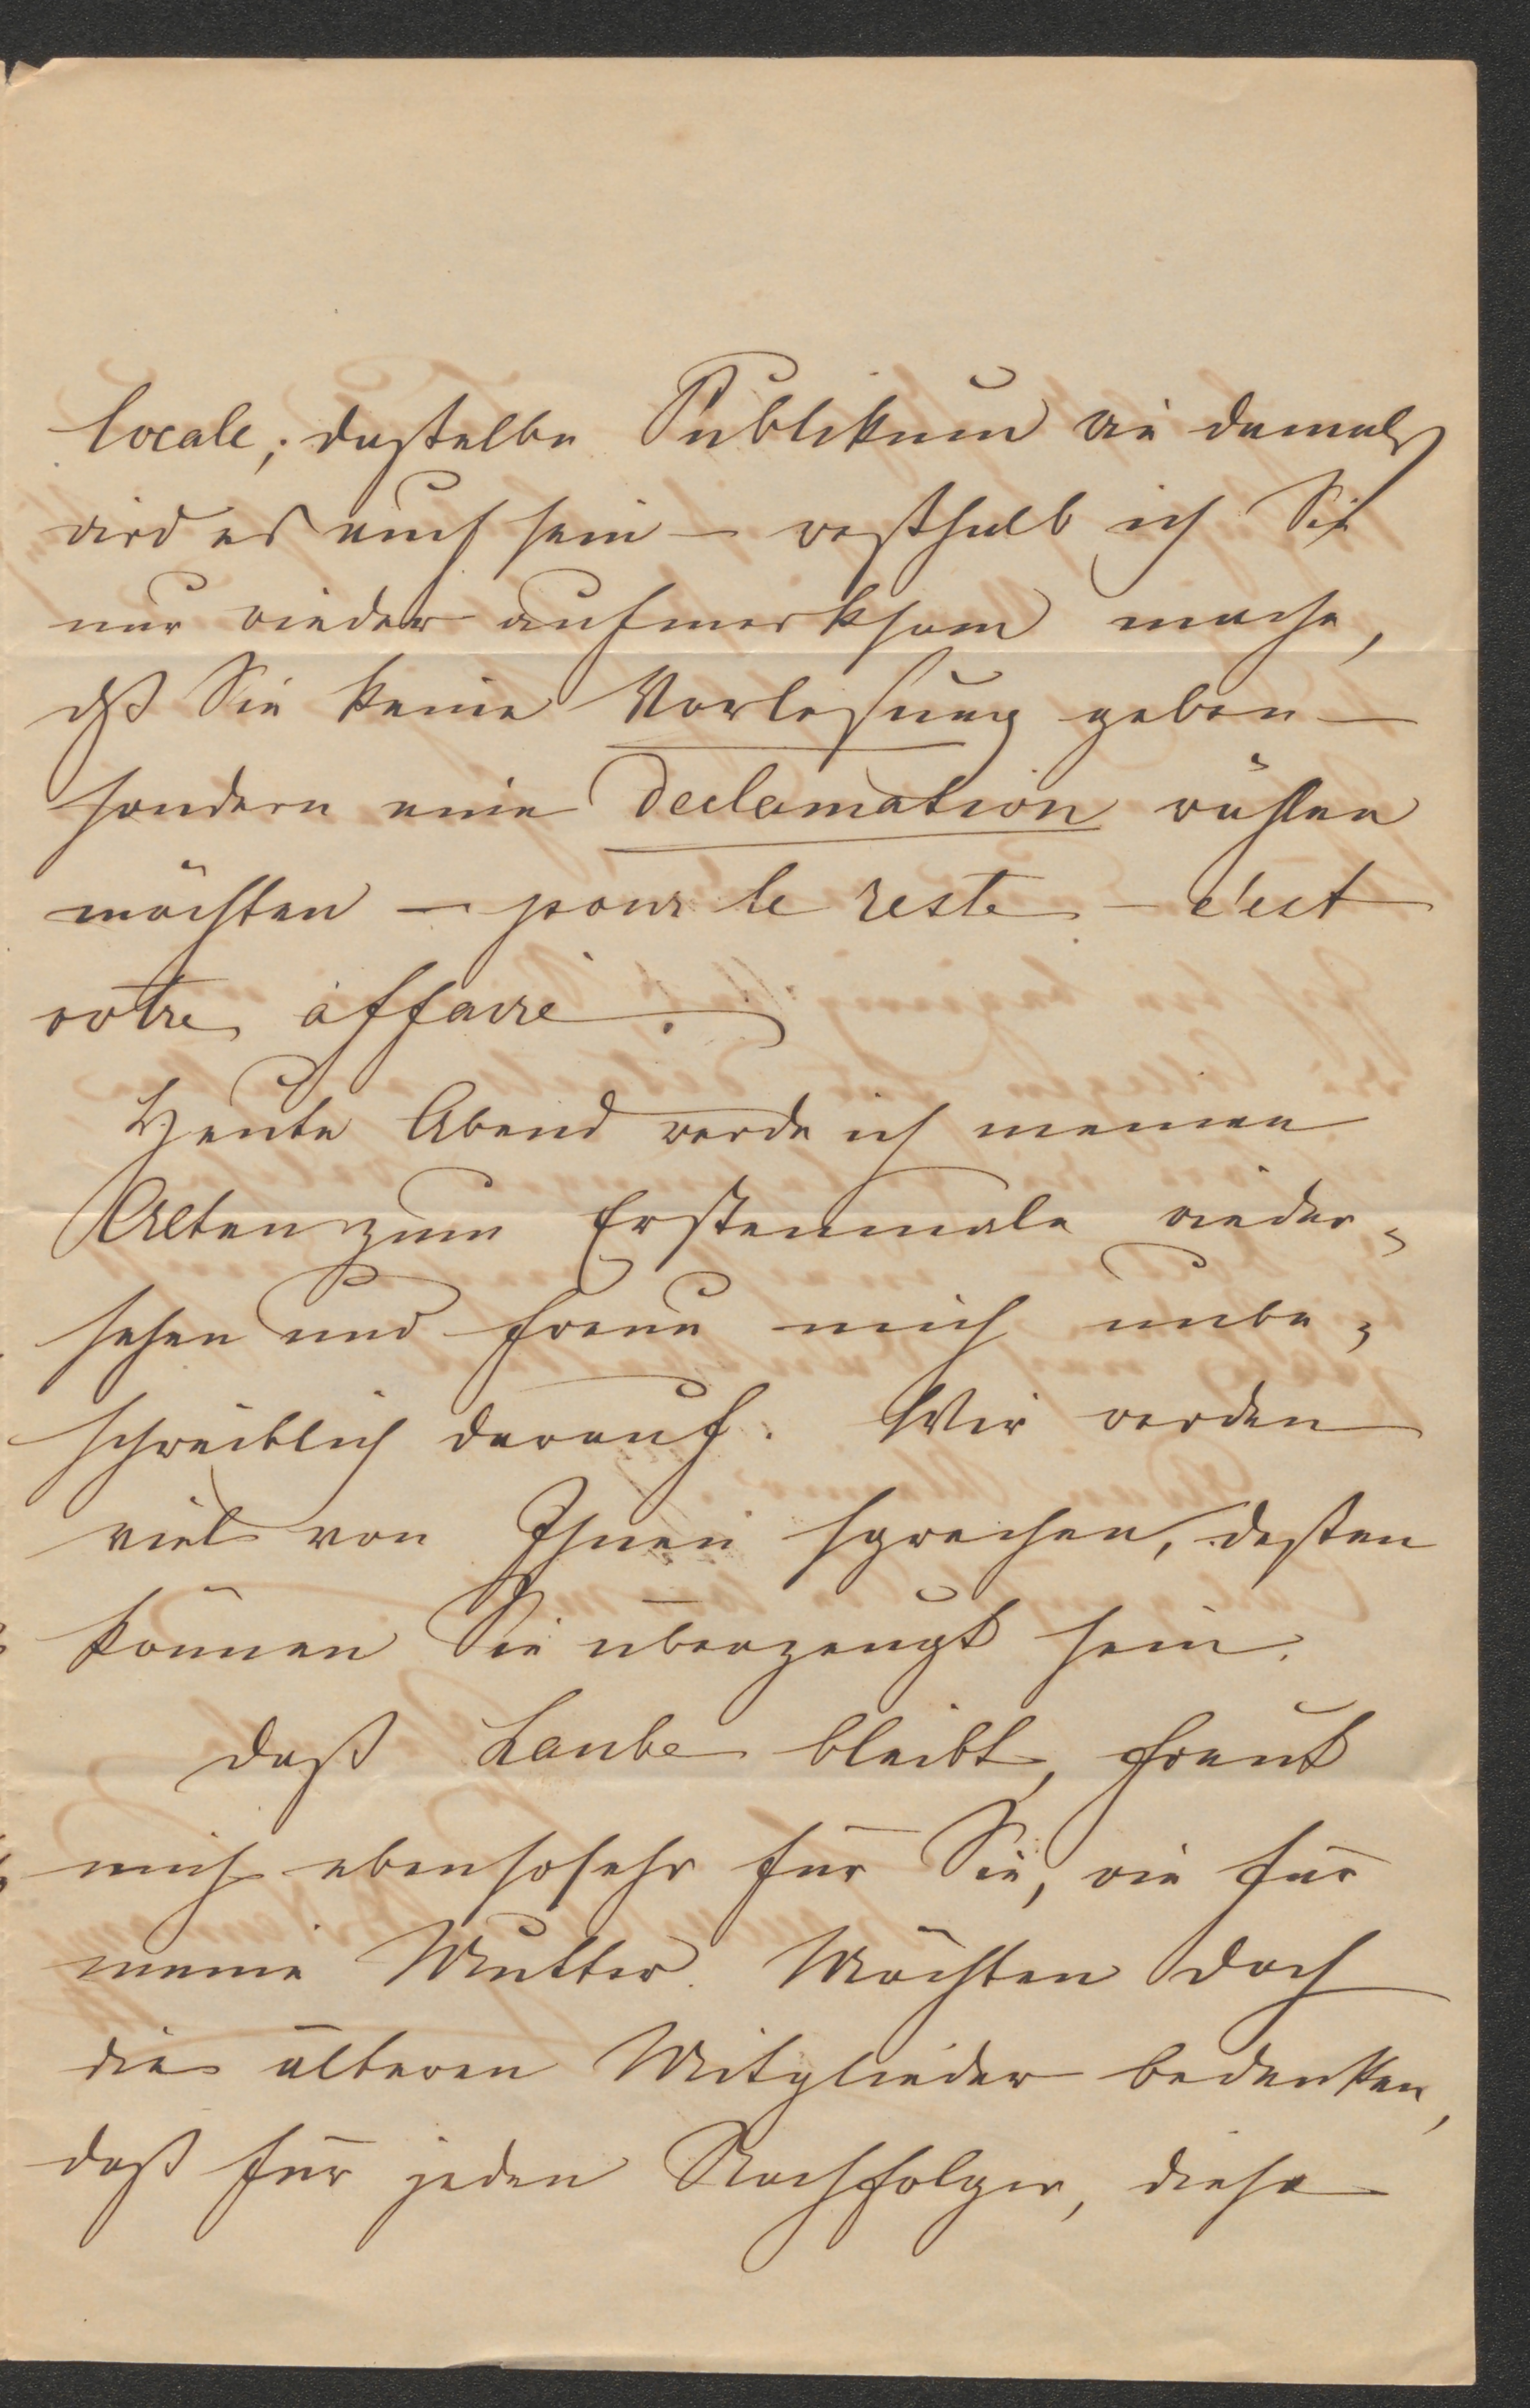 locale; dasselbe Publikum wie damals
wird es auch sein – weßhalb ich Sie
nur wieder aufmerksam mache,
dß Sie keine Vorlesung geben –
sondern eine Declamation wählen
möchten – pour le reste – c'est
votre affaire.
Heute Abend werde ich meinen
Alten zum Erstenmale wieder=
sehen und freue mich unbe=
schreiblich darauf. Wir werden
viel von Ihnen sprechen, dessen
können Sie überzeugt sein.
Daß Laube bleibt, freut
mich ebensosehr für Sie, wie für
meine Mutter. Möchten doch
die älteren Mitglieder bedenken,
daß für jeden Nachfolger, diese